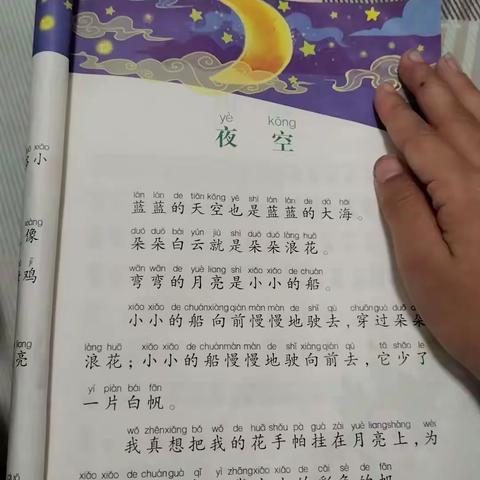 yè kōng
夜空
lán lán de tiān kōng yě shì lán lán de dà hǎi
蓝蓝的天空也是蓝蓝的大海。
duǒ duǒ bái yún jiù shì duǒ duǒ làng huā
朵朵白云就是朵朵浪花。
wān wān de yuè liang shì xiǎo xiǎo de chuán
弯弯的月亮是小小的船。
xiǎo xiǎo de chuán xiàng qián màn màn de shǐ qù chuān guò duǒ
小小的船向前慢慢地驶去，穿过朵朵
làng huā xiǎo xiǎo de chuán màn màn de shǐ xiàng qián qù tā shǎo le
浪花；小小的船慢慢地驶向前去，它少了
yí piàn bái fān
一片白帆。
wǒ zhēn xiǎng bǎ wǒ de huā shǒu pà guà zài yuè liang shàng wèi
我真想把我的花手帕挂在月亮上，为
xiǎo xiǎo de chuán guà qǐ yì zhāng xiǎo xiǎo de cǎi sè de fān
xiǎo
小
xiàng
像
鸡
亮